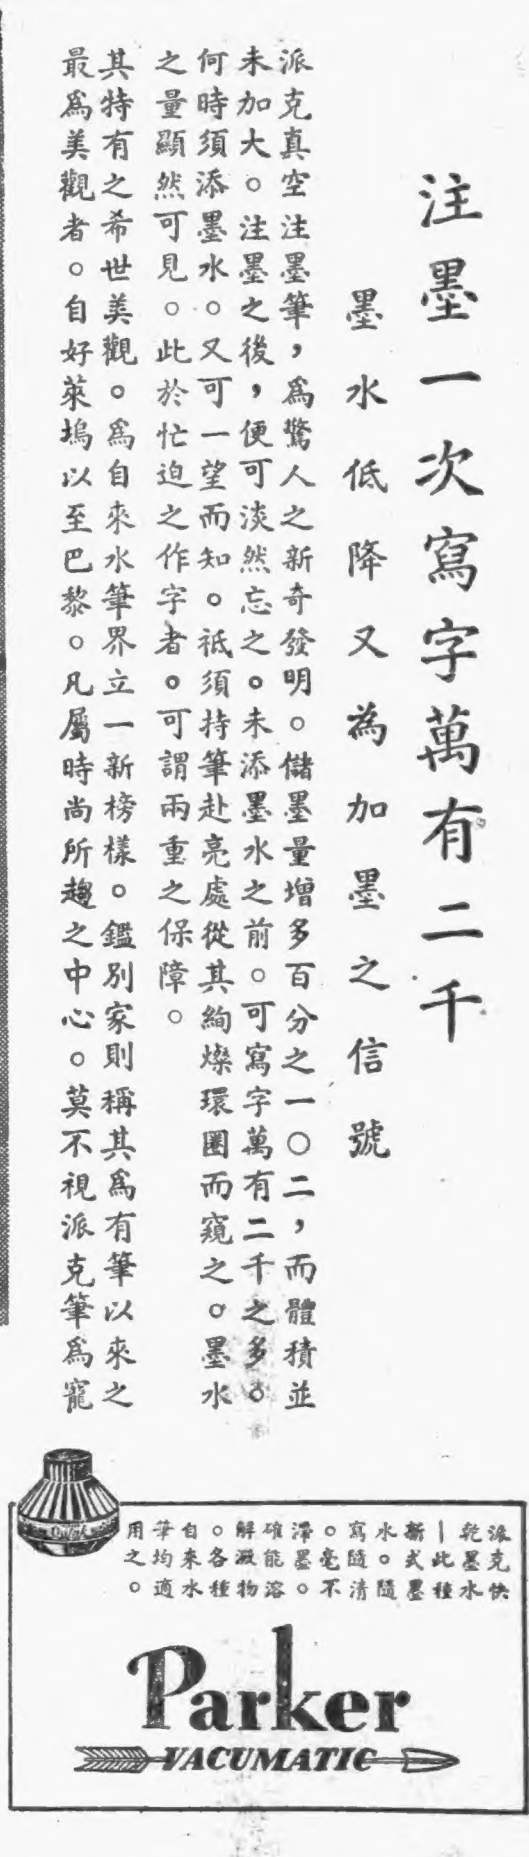 注墨一次寫字萬有二千
墨水低降又為加墨之信號
派克真空注墨筆，爲驚人之新奇發明。儲墨量增多百分之一〇二，而體積並
未加大。注墨之後，便可淡然忘之。未添墨水之前。可寫字萬有二千之多。
何時須添墨水。又可一望而知。祗須持筆赴亮處從其絢燦環圈而窺之。墨水
之量顯然可見。此於忙迫之作字者。可謂兩重之保障。
其特有之希世美觀。爲自來水筆界立一新榜樣。鑑別家則稱其爲有筆以來之
最爲美觀者。自好萊塢以至巴黎。凡屬時尚所趨之中心。莫不視派克筆爲寵
派克快
乾墨水
｜此種
新式墨
水。隨
寫隨清
。毫不
滯墨。
確能溶
解澱物
。各種
自來水
筆均適
用之。
Quink
Parker
VACUMATIC